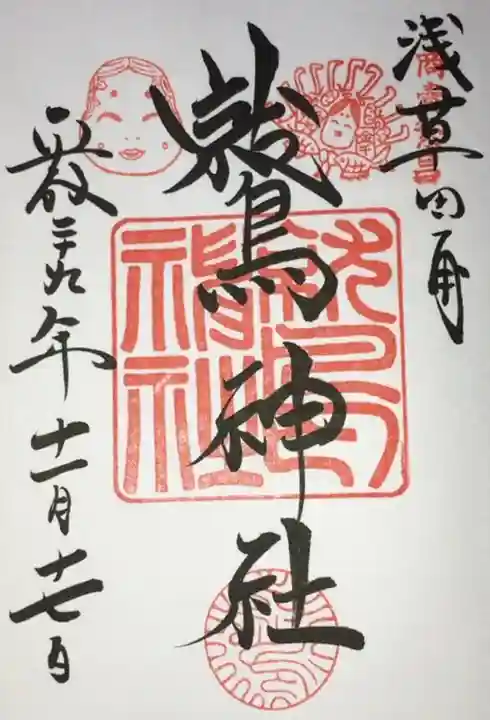 浅草田甫
鷲神社
平成二十九年十一月十七日
鷲神社